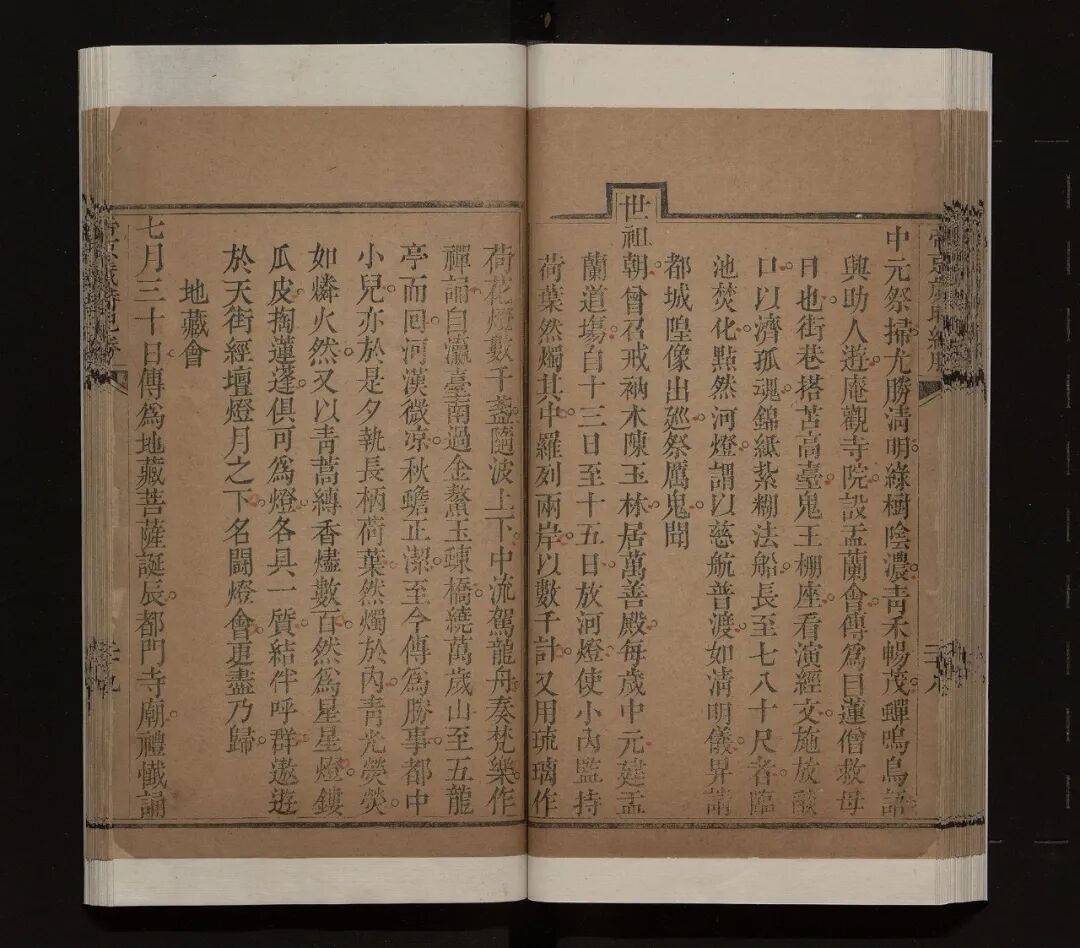 中元祭掃尤勝清明綠樹陰濃青禾暢茂蟬鳴鳥語
興助人遊庵觀寺院設盂蘭會傳爲目蓮僧救母
日也街巷搭苫高臺鬼王棚座看演經文施放燄
口以濟孤魂錦紙紮糊法船長至七八十尺者臨
池焚化點然河燈謂以慈航普渡如清明儀舁請
都城隍像出巡祭厲鬼聞
世祖朝曾召戒衲木陳玉林居萬善殿每歲中元建盂
蘭道場自十三日至十五日放河燈使小內監持
荷葉然燭其中羅列兩岸以數千計又用琉璃作
荷花燈數千盞隨波上下中流駕龍舟奏梵樂作
禪誦自瀛臺南過金鰲玉蝀橋繞萬歲山至五龍
亭而回河漢微凉秋蟾正潔至今傳爲勝事都中
小兒亦於是夕執長柄荷葉然燭於內青光熒熒
如燐火然又以青蒿縛香燼數百然爲星星燈鏤
瓜皮掏蓮蓬俱可爲燈各具一質結伴呼群遨遊
於天街經壇燈月之下名鬪燈會更盡乃歸
地藏會
七月三十日傳爲地藏菩薩誕辰都門寺廟禮懺誦